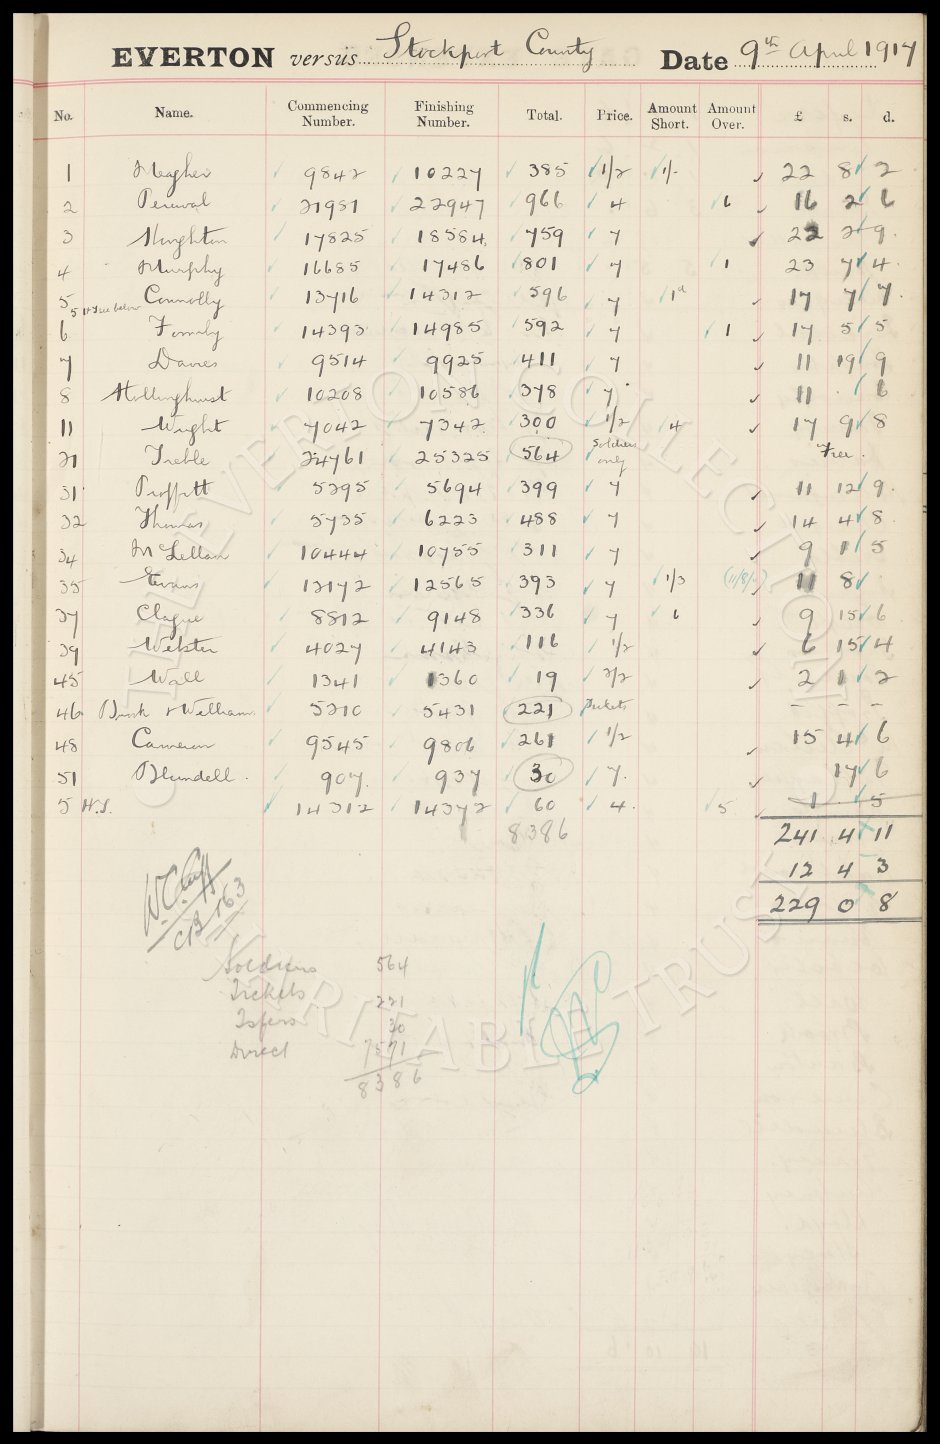 EVERTON versus Stockport County Date 9th April 1917
No. Name. Commencing Number. Finishing Number. Total. Price. Amount Short. Amount Over. £ s. d.
1 Meagher 9842 10227 385 1/2 1/- 22 8 2
2 Percival 21981 22947 966 4 6 16 2 6
3 Houghton 17825 18584 759 7 22 2 9
4 Murphy 16685 17486 801 7 1 23 7 4
5 Connolly 13716 14312 596 7 1d 17 7 7
5 H.T. see below
6 Formby 14393 14985 592 7 1 17 5 5
7 Davies 9514 9925 411 7 11 19 9
8 Hollinghurst 10208 10586 378 7 11 6
11 Wright 7042 7342 300 1/2 4 17 9 8
21 Treble 24761 25325 564 Soldiers only Free.
31 Proffitt 5295 5694 399 7 11 12 9
32 Thomas 5735 6223 488 7 14 4 8
34 McLellan 10444 10755 311 7 9 1 5
35 Evans 12172 12565 393 7 1/3 (11/8/-) 11 8
37 Clague 8812 9148 336 7 6 9 15 6
39 Webster 4027 4143 116 1/2 6 15 4
45 Wall 1341 1360 19 2/2 2 1 2
46 Brook & Williams 5210 5431 221 Tickets - - -
48 Cameron 9545 9806 261 1/2 15 4 6
51 Blundell 907 937 30 7 17 6
5 H.T. 14312 14372 60 4 5 1 . 5
8386 241 4 11
12 4 3
229 0 8
W.C. Cuff
CB 163
Soldiers 564
Tickets 221
Tsfers 30
Direct 7571
8386
THE EVERTON COLLECTION
CHARITABLE TRUST